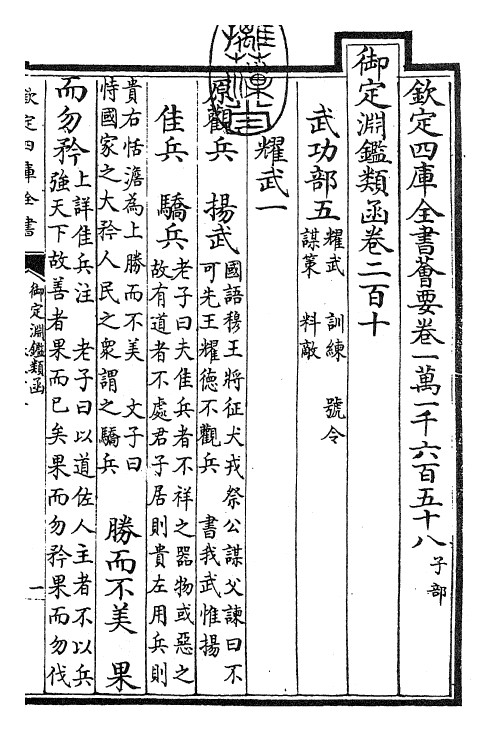 欽定四庫全書薈要卷一萬一千六百五十八 子部
御定淵鑑類函卷二百十
武功部五 耀武 訓練 號令
謀策 料敵
耀武一
原觀兵 揚武 國語穆王將征犬戎祭公謀父諫曰不
可先王耀德不觀兵 書我武惟揚
佳兵 驕兵 老子曰夫佳兵者不祥之器物或惡之
故有道者不處君子居則貴左用兵則
貴右恬澹為上勝而不美 文子曰
恃國家之大矜人民之衆謂之驕兵 勝而不美 果
而勿矜 上詳佳兵注 老子曰以道佐人主者不以兵
强天下故善者果而已矣果而勿矜果而勿伐
欽定四庫全書
御定淵鑑類函
一